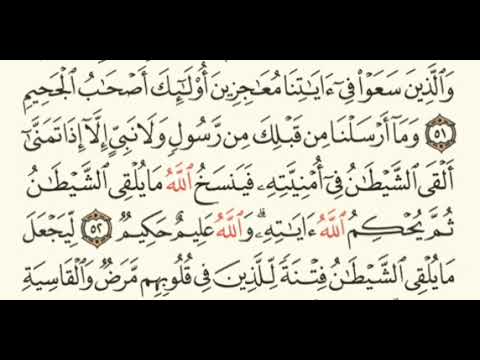 وَٱلَّذِينَ سَعَوْا۟ فِىٓ ءَايَـٰتِنَا مُعَـٰجِزِينَ أُو۟لَـٰٓئِكَ أَصْحَـٰبُ ٱلْجَحِيمِ
٥١ وَمَآ أَرْسَلْنَا مِن قَبْلِكَ مِن رَّسُولٍ وَلَا نَبِىٍّ إِلَّآ إِذَا تَمَنَّىٰٓ
أَلْقَى ٱلشَّيْطَـٰنُ فِىٓ أُمْنِيَّتِهِۦ فَيَنسَخُ ٱللَّهُ مَا يُلْقِى ٱلشَّيْطَـٰنُ
ثُمَّ يُحْكِمُ ٱللَّهُ ءَايَـٰتِهِۦ ۗ وَٱللَّهُ عَلِيمٌ حَكِيمٌ ٥٢ لِّيَجْعَلَ
مَا يُلْقِى ٱلشَّيْطَـٰنُ فِتْنَةً لِّلَّذِينَ فِى قُلُوبِهِم مَّرَضٌ وَٱلْقَاسِيَةِ